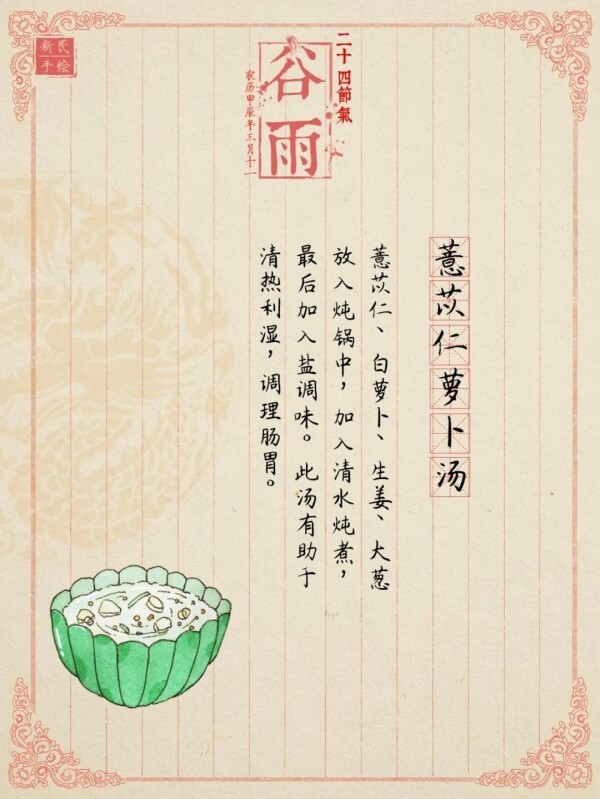 新氏
手绘
二十四節氣
谷雨
农历甲辰年三月十一
薏苡仁萝卜汤
薏苡仁、白萝卜、生姜、大葱
放入炖锅中，加入清水炖煮，
最后加入盐调味。此汤有助于
清热利湿，调理肠胃。